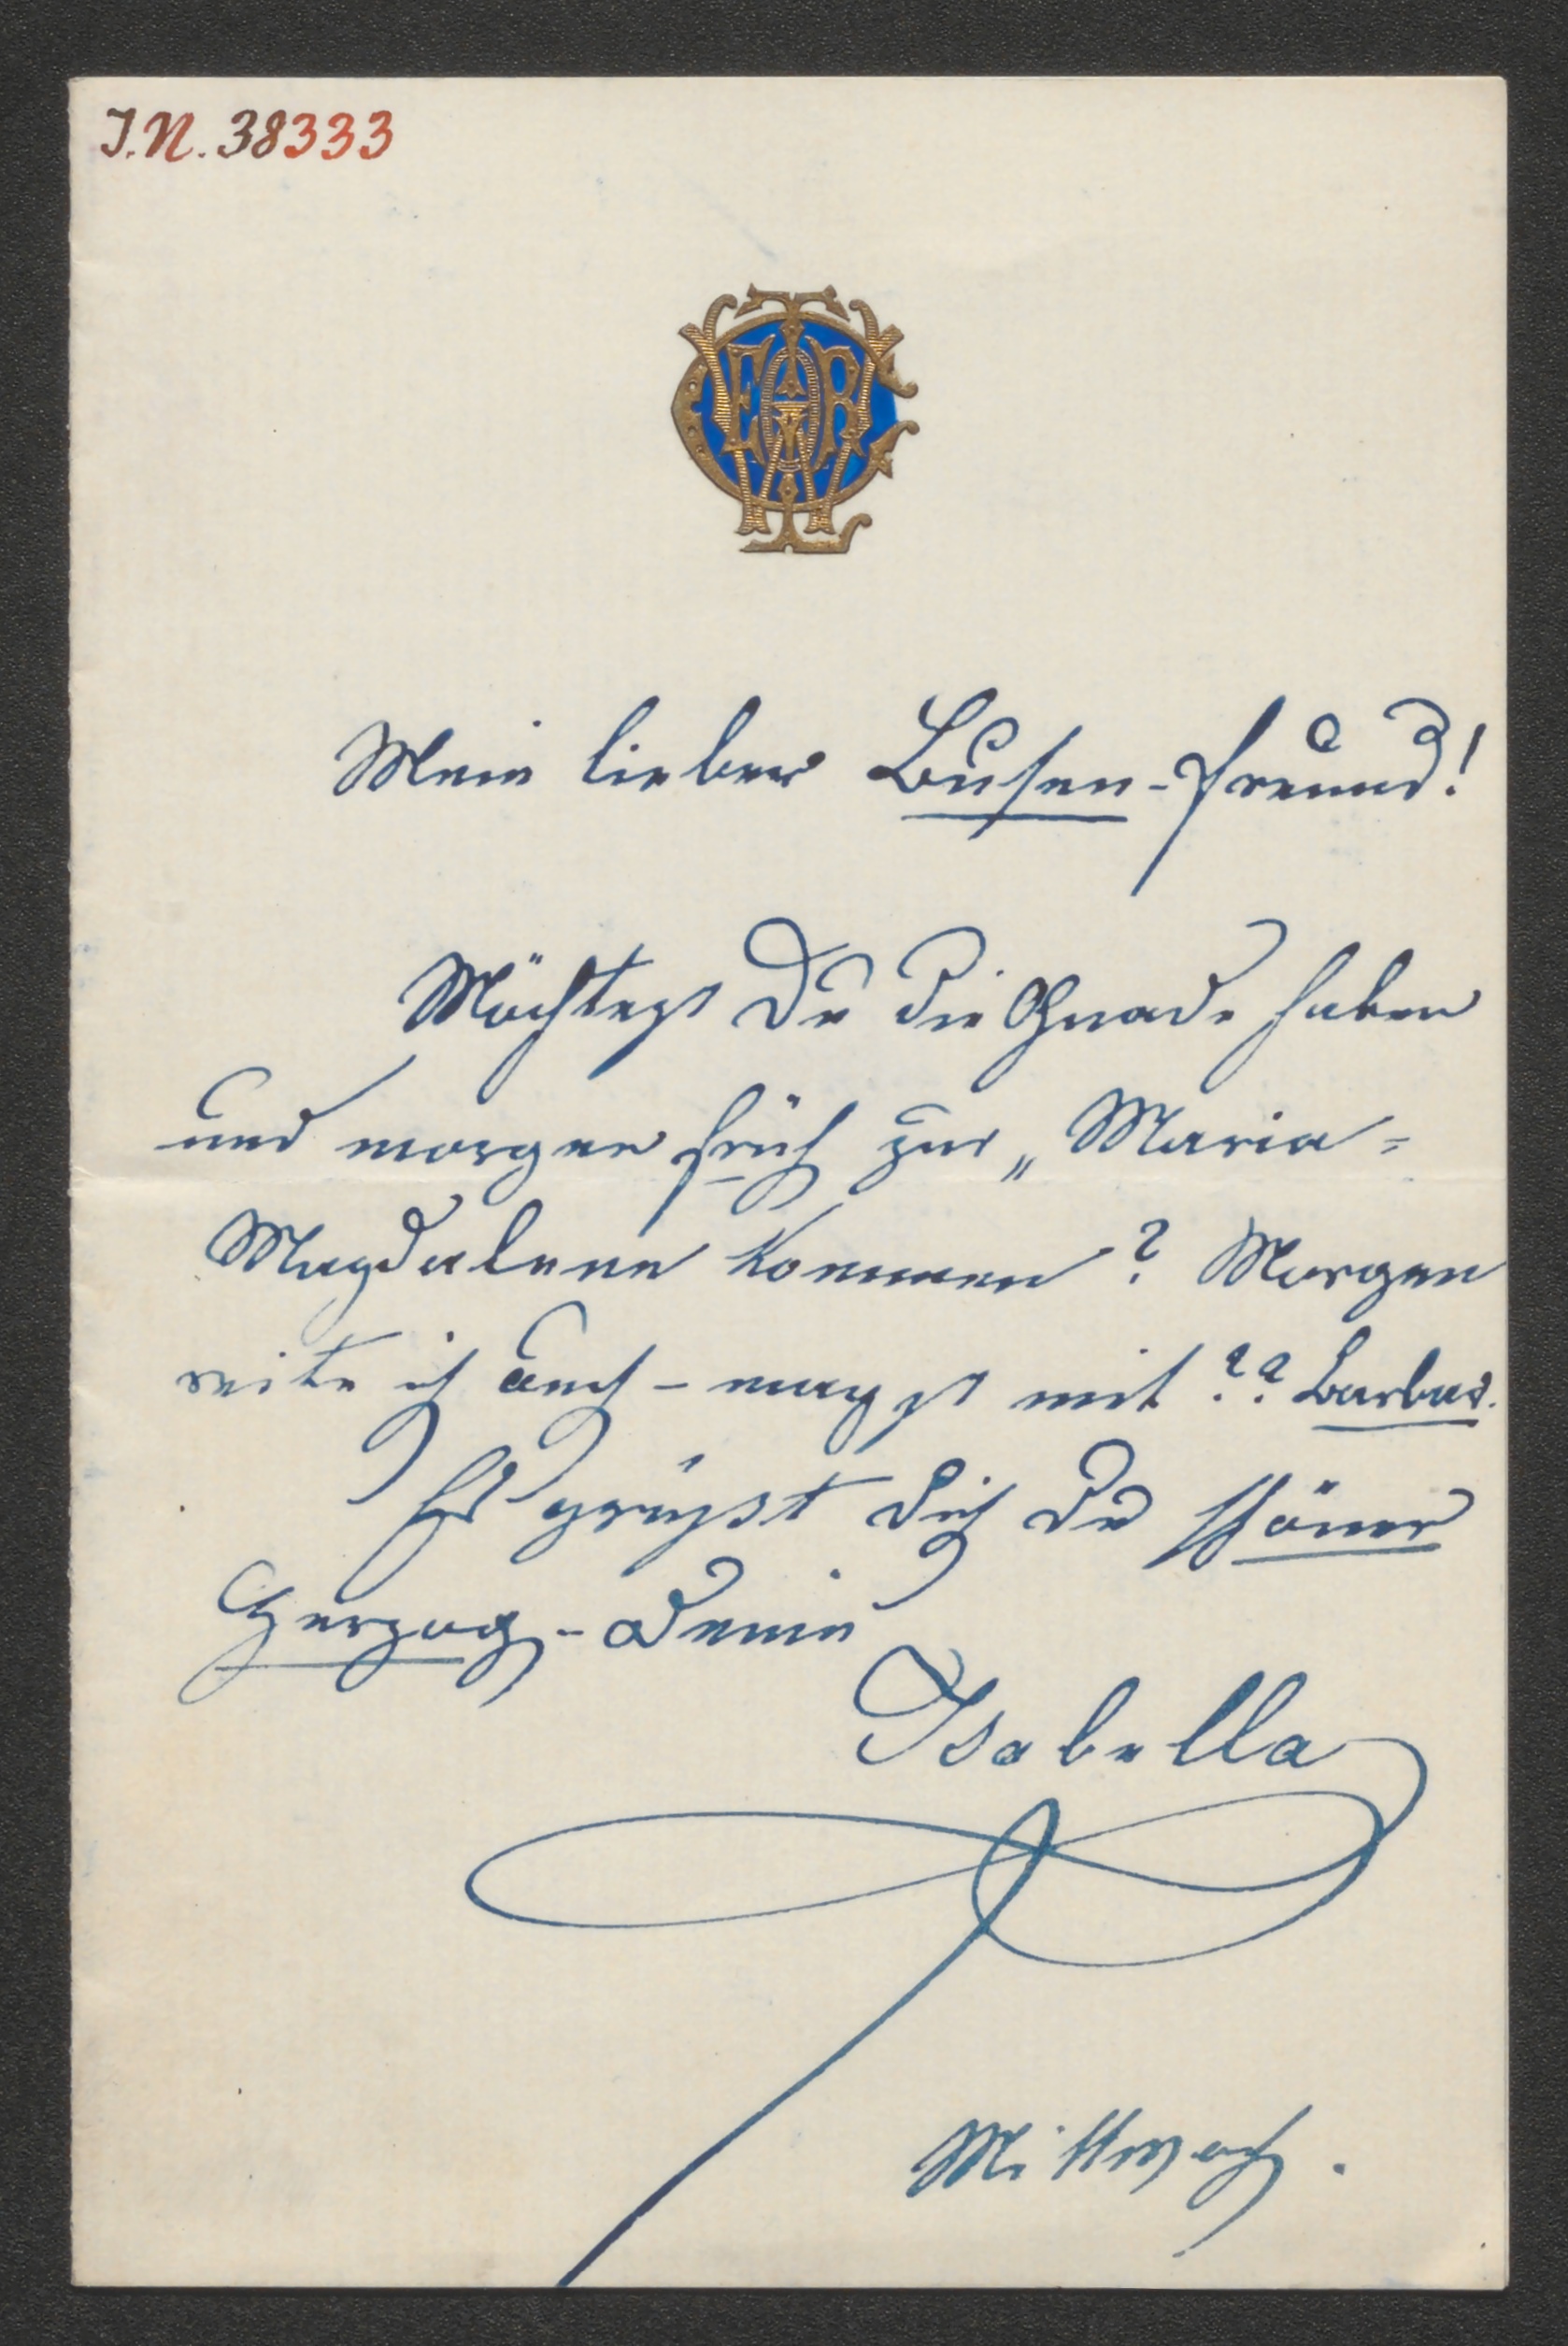 J.N. 38333
Mein lieber Busen-freund!
Möchtest Du die Gnade haben
und morgen früh zur „Maria=
Magdalena kommen? Morgen
reite ich auch – magst mit??
Es grüsst dich Du schöner
Herzog – Deine
Isabella
Mittwoch.